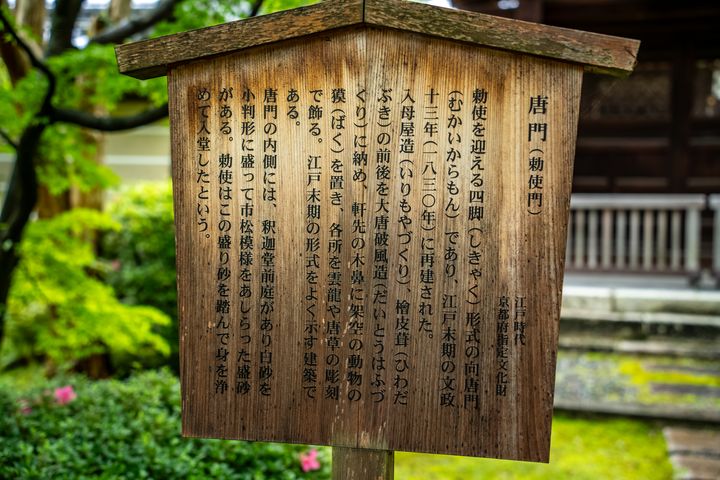 唐門（勅使門）
江戸時代
京都府指定文化財
勅使を迎える四脚（しきゃく）形式の向唐門
（むかいからもん）であり、江戸末期の文政
十三年（一八三〇年）に再建された。
入母屋造（いりもやづくり）、檜皮葺（ひわだ
ぶき）の前後を大唐破風造（だいとうはふづ
くり）に納め、軒先の木鼻に架空の動物の
獏（ばく）を置き、各所を雲龍や唐草の彫刻
で飾る。江戸末期の形式をよく示す建築で
ある。
唐門の内側には、釈迦堂前庭があり白砂を
小判形に盛って市松模様をあしらった盛砂
がある。勅使はこの盛り砂を踏んで身を浄
めて入堂したという。